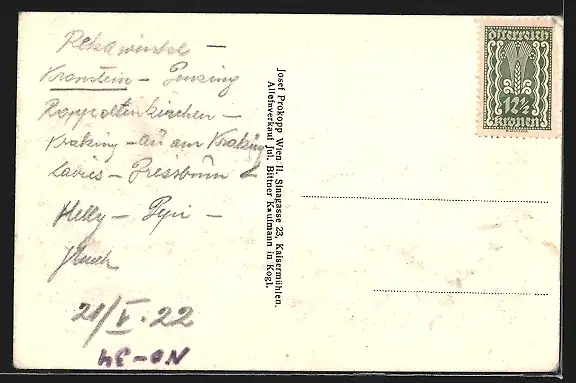 Rekawinkel –
Kronstein – Penzing
Rappoltenkirchen –
Kraking – au am Kraking
Pressbaum
Helly –
21/V.22
NÖ-34
Josef Prokopp Wien II. Sinagasse 23, Kaisermühlen.
Alleinverkauf Jul. Bittner Kaufmann in Kogl.
Österreich
12½
Kronen